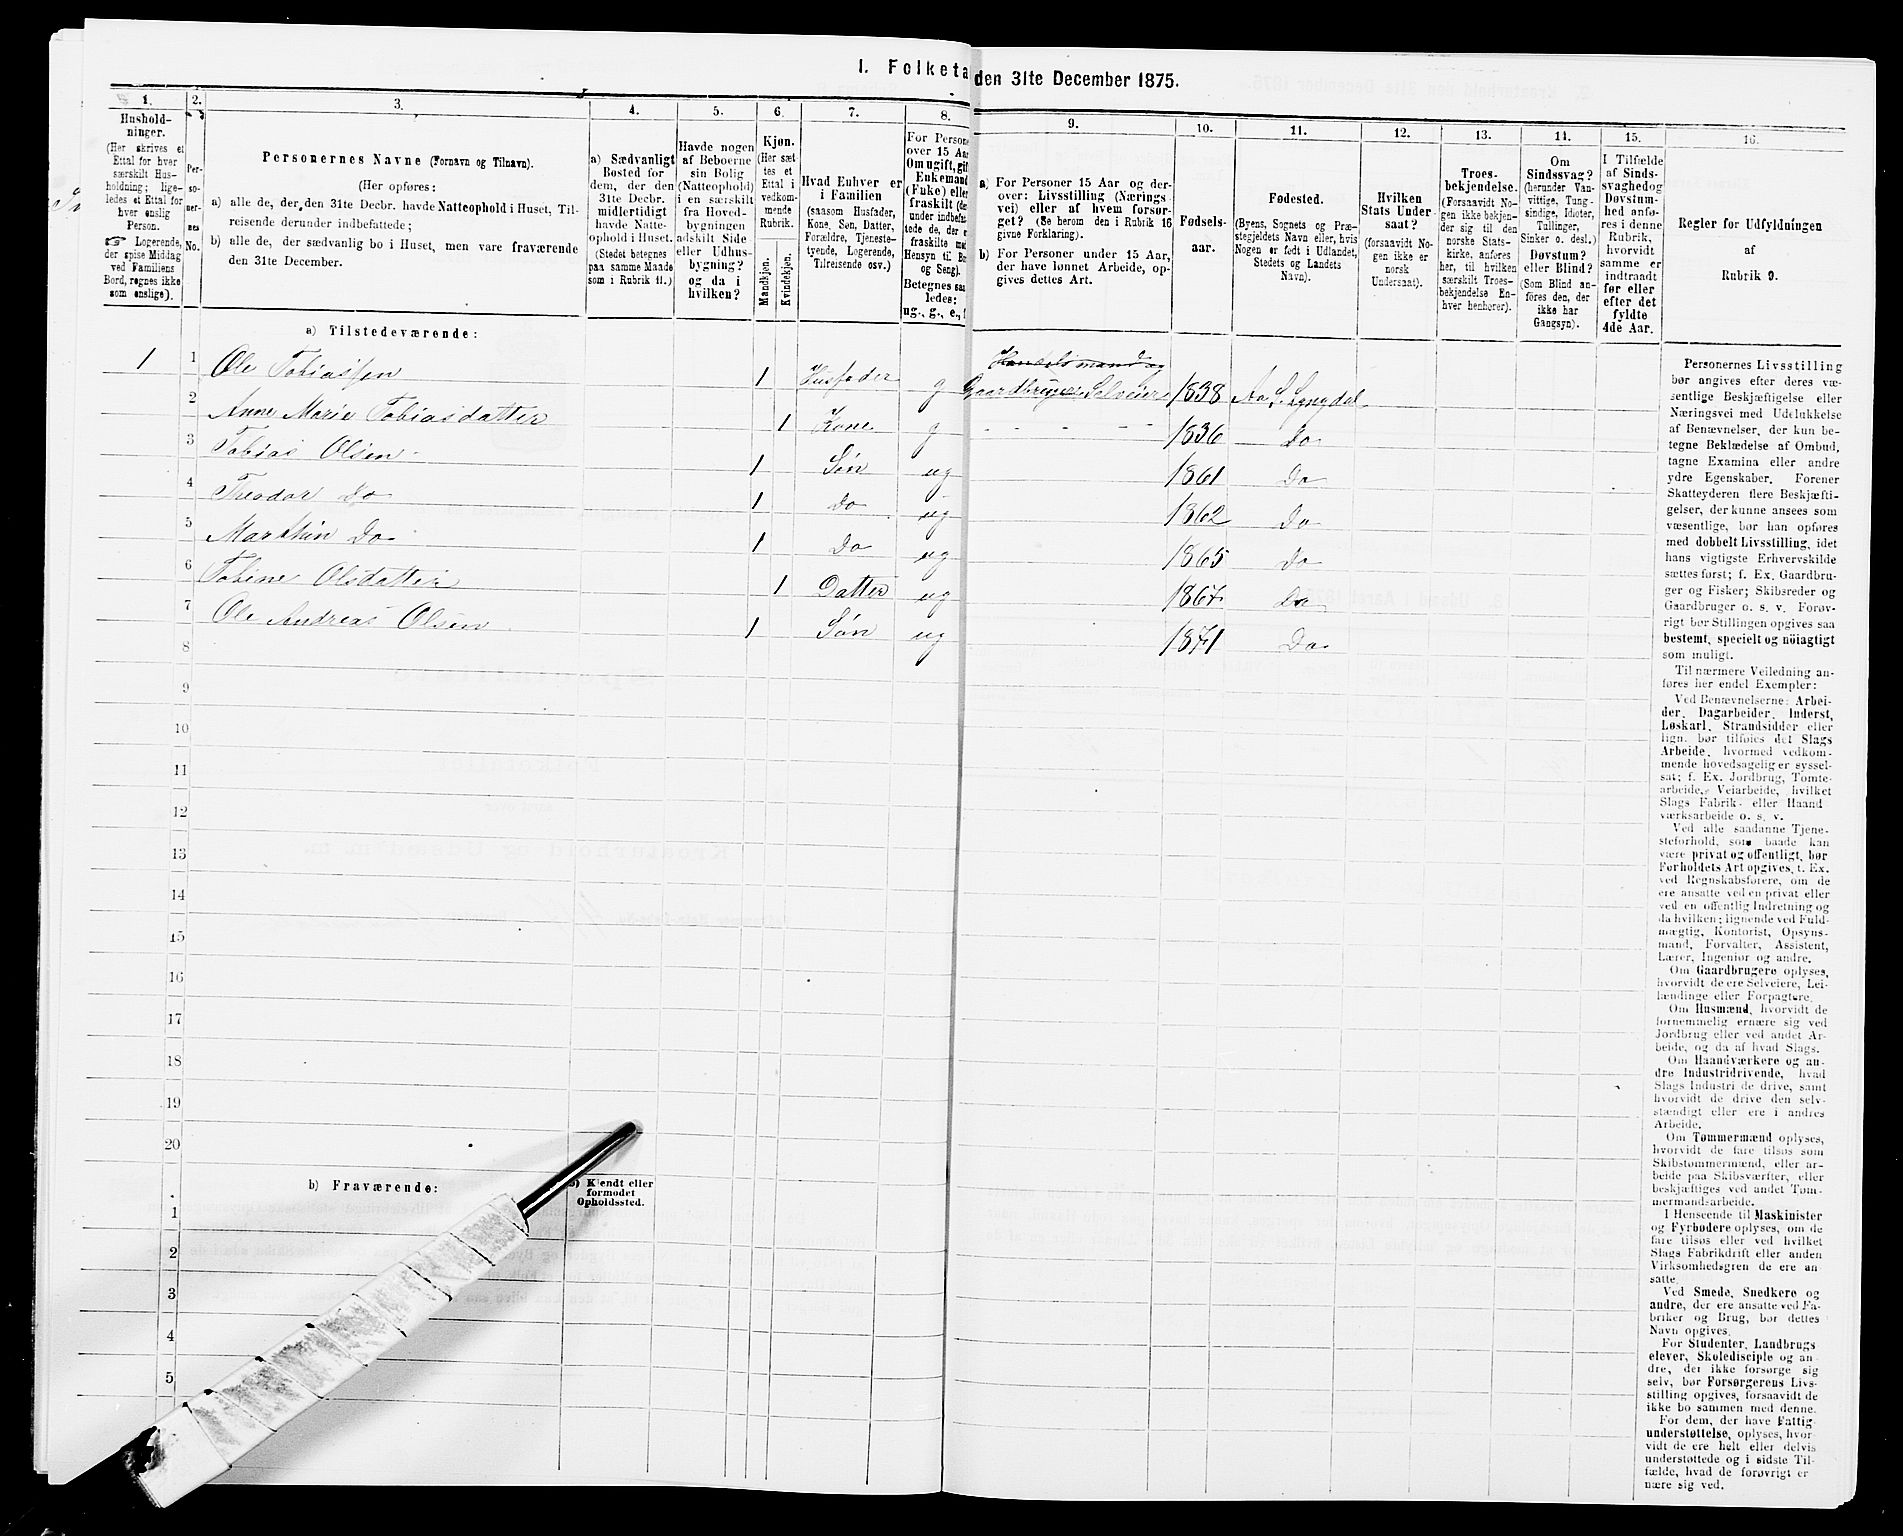 I. Folketa den 31te December 1875.
1.
Hushold-
ninger.
(Her skrives et
Ettal for hver
særskilt Hus-
holdning; lige-
ledes et Ettal for
hver enslig
Person.
☞ Logerende,
der spise Middag
ved Familiens
Bord, regnes ikke
som enslige).
2.
Per-
so-
ner-
nes
No.
3.
Personernes Navne (Fornavn og Tilnavn).
(Her opføres:
a) alle de, der, den 31te Decbr. havde Natteophold i Huset, Til-
reisende derunder indbefattede;
b) alle de, der sædvanlig bo i Huset, men vare fraværende
den 31te December.
4.
a) Sædvanligt
Bosted for
dem, der den
31te Decbr.
midlertidigt
havde Natte-
ophold i Huset.
(Stedet betegnes
paa samme Maade
som i Rubrik 11.)
5.
Havde nogen
af Beboerne
sin Bolig
(Natteophold)
i en særskilt
fra Hoved-
bygningen
adskilt Side
eller Udhus-
bygning?
og da i
hvilken?
6.
Kjøn.
(Her sæt-
tes et
Ettal i
vedkom-
mende
Rubrik.
Mandkjøn.
Kvindekjøn.
7.
Hvad Enhver er
i Familien
(saasom Husfader,
Kone, Søn, Datter,
Forældre, Tjeneste-
tyende, Logerende,
Tilreisende osv.)
8.
For Persone
over 15 Aar
Om ugift, gif
Enkemand
(Fuke) eller
fraskilt (de
under indbefat
tede de, der e
fraskilte me
Hensyn til Bo
og Seng).
Betegnes saa
ledes:
ug., g., e., f
9.
a) For Personer 15 Aar og der-
over: Livsstilling (Nærings-
vei) eller af hvem forsør-
get? (Se herom den i Rubrik 16
givne Forklaring).
b) For Personer under 15 Aar,
der have lønnet Arbeide, op-
gives dettes Art.
10.
Fødsels-
aar.
11.
Fødested.
(Byens, Sognets og Præ-
stegjeldets Navn eller, hvis
Nogen er født i Udlandet,
Stedets og Landets
Navn).
12.
Hvilken
Stats Under-
saat?
(forsaavidt No-
gen ikke er
norsk
Undersaat).
13.
Troes-
bekjendelse.
(Forsaavidt No-
gen ikke bekjen-
der sig til den
norske Stats-
kirke, anføres
her, til hvilken
særskilt Troes-
bekjendelse En-
hver henhører).
14.
Om
Sindssvag?
(herunder Van-
vittige, Tung-
sindige, Idioter,
Tullinger,
Sinker o. desl.)
Døvstum?
eller Blind?
(Som Blind an-
føres den, der
ikke har
Gangsyn).
15.
I Tilfælde
af Sinds-
svaghed og
Døvstum-
hed anfø-
res i denne
Rubrik,
hvorvidt
samme er
indtraadt
før eller
efter det
fyldte
4de Aar.
16.
Regler for Udfyldningen
af
Rubrik 9.
a) Tilstedeværende:
1 1 Ole Tobiassen 1 Husfader g Handelsmand og Gaardbruger Selveier 1838 Aa S. Lyngdal
2 Anne Marie Tobiasdatter 1 Kone g - - - - 1836 Do
3 Tobias Olsen 1 Søn ug 1861 Do
4 Theodor Do 1 do ug 1862 Do
5 Marthin Do 1 Do ug 1865 Do
6 Tobine Olsdatter 1 Datter ug 1867 Do
7 Ole Andreas Olsen 1 Søn ug 1871 Do
8
9
10
11
12
13
14
15
16
17
18
19
20
b) Fraværende:
b) Kjendt eller
formodet
Opholdssted.
1
2
3
4
5
Personernes Livsstilling
bør angives efter deres væ-
sentlige Beskjæftigelse eller
Næringsvei med Udelukkelse
af Benævnelser, der kun be-
tegne Beklædelse af Ombud,
tagne Examina eller andre
ydre Egenskaber. Forener
Skatteyderen flere Beskjæfti-
gelser, der kunne ansees som
væsentlige, bør han opføres
med dobbelt Livsstilling, idet
hans vigtigste Erhvervskilde
sættes først; f. Ex. Gaardbru-
ger og Fisker; Skibsreder og
Gaardbruger o. s. v. Forøv-
rigt bør Stillingen opgives saa
bestemt, specielt og nöiagtigt
som muligt.
Til nærmere Veiledning an-
føres her endel Exempler:
Ved Benævnelserne: Arbei-
der, Dagarbeider, Inderst,
Løskarl, Strandsidder eller
lign. bør tilføies det Slags
Arbeide, hvormed vedkom-
mende hovedsagelig er syssel-
sat; f. Ex. Jordbrug, Tomte-
arbeide, Veiarbeide, hvilket
Slags Fabrik- eller Haand
værksarbeide o. s. v.
Ved alle saadanne Tjene-
steforhold, som baade kan
være privat og offentligt, bør
Forholdets Art opgives, t. Ex.
ved Regnskabsførere, om de
ere ansatte ved en privat eller
ved en offentlig Indretning og
da hvilken; lignende ved Fuld-
mægtig, Kontorist, Opsyns-
mand, Forvalter, Assistent,
Lærer, Ingeniør og andre.
Om Gaardbrugere oplyses,
hvorvidt de ere Selveiere, Lei-
lændinge eller Forpagtere.
Om Husmænd, hvorvidt de
fornemmelig ernære sig ved
Jordbrug eller ved andet Ar-
beide, og da af hvad Slags.
Om Haandværkere og an-
dre Industridrivende, hvad
Slags Industri de drive, samt
hvorvidt de drive den selv-
stændigt eller ere i andres
Arbeide.
Om Tømmermænd oplyses,
hvorvidt de fare tilsøs som
Skibstømmermænd, eller ar-
beide paa Skibsværfter, eller
beskjæftiges ved andet Tøm-
mermandsarbeide.
I Henseende til Maskinister
og Fyrbødere oplyses, om de
fare tilsøs eller ved hvilket
Slags Fabrikdrift eller anden
Virksomhedsgren de ere an-
satte.
Ved Smede, Snedkere og
andre, der ere ansatte ved Fa-
briker og Brug, bør dettes
Navn opgives.
For Studenter, Landbrugs
elever, Skoledisciple og an-
dre, det ikke forsørge sig
selv, bør Forsørgerens Livs-
stilling opgives, forsaavidt de
ikke bo sammen med denne.
For dem, der have Fattig-
understøttelse, oplyses, hvor-
vidt de ere helt eller delvis
understøttede og i sidste Til-
fælde, hvad de forøvrigt er
nære sig ved.